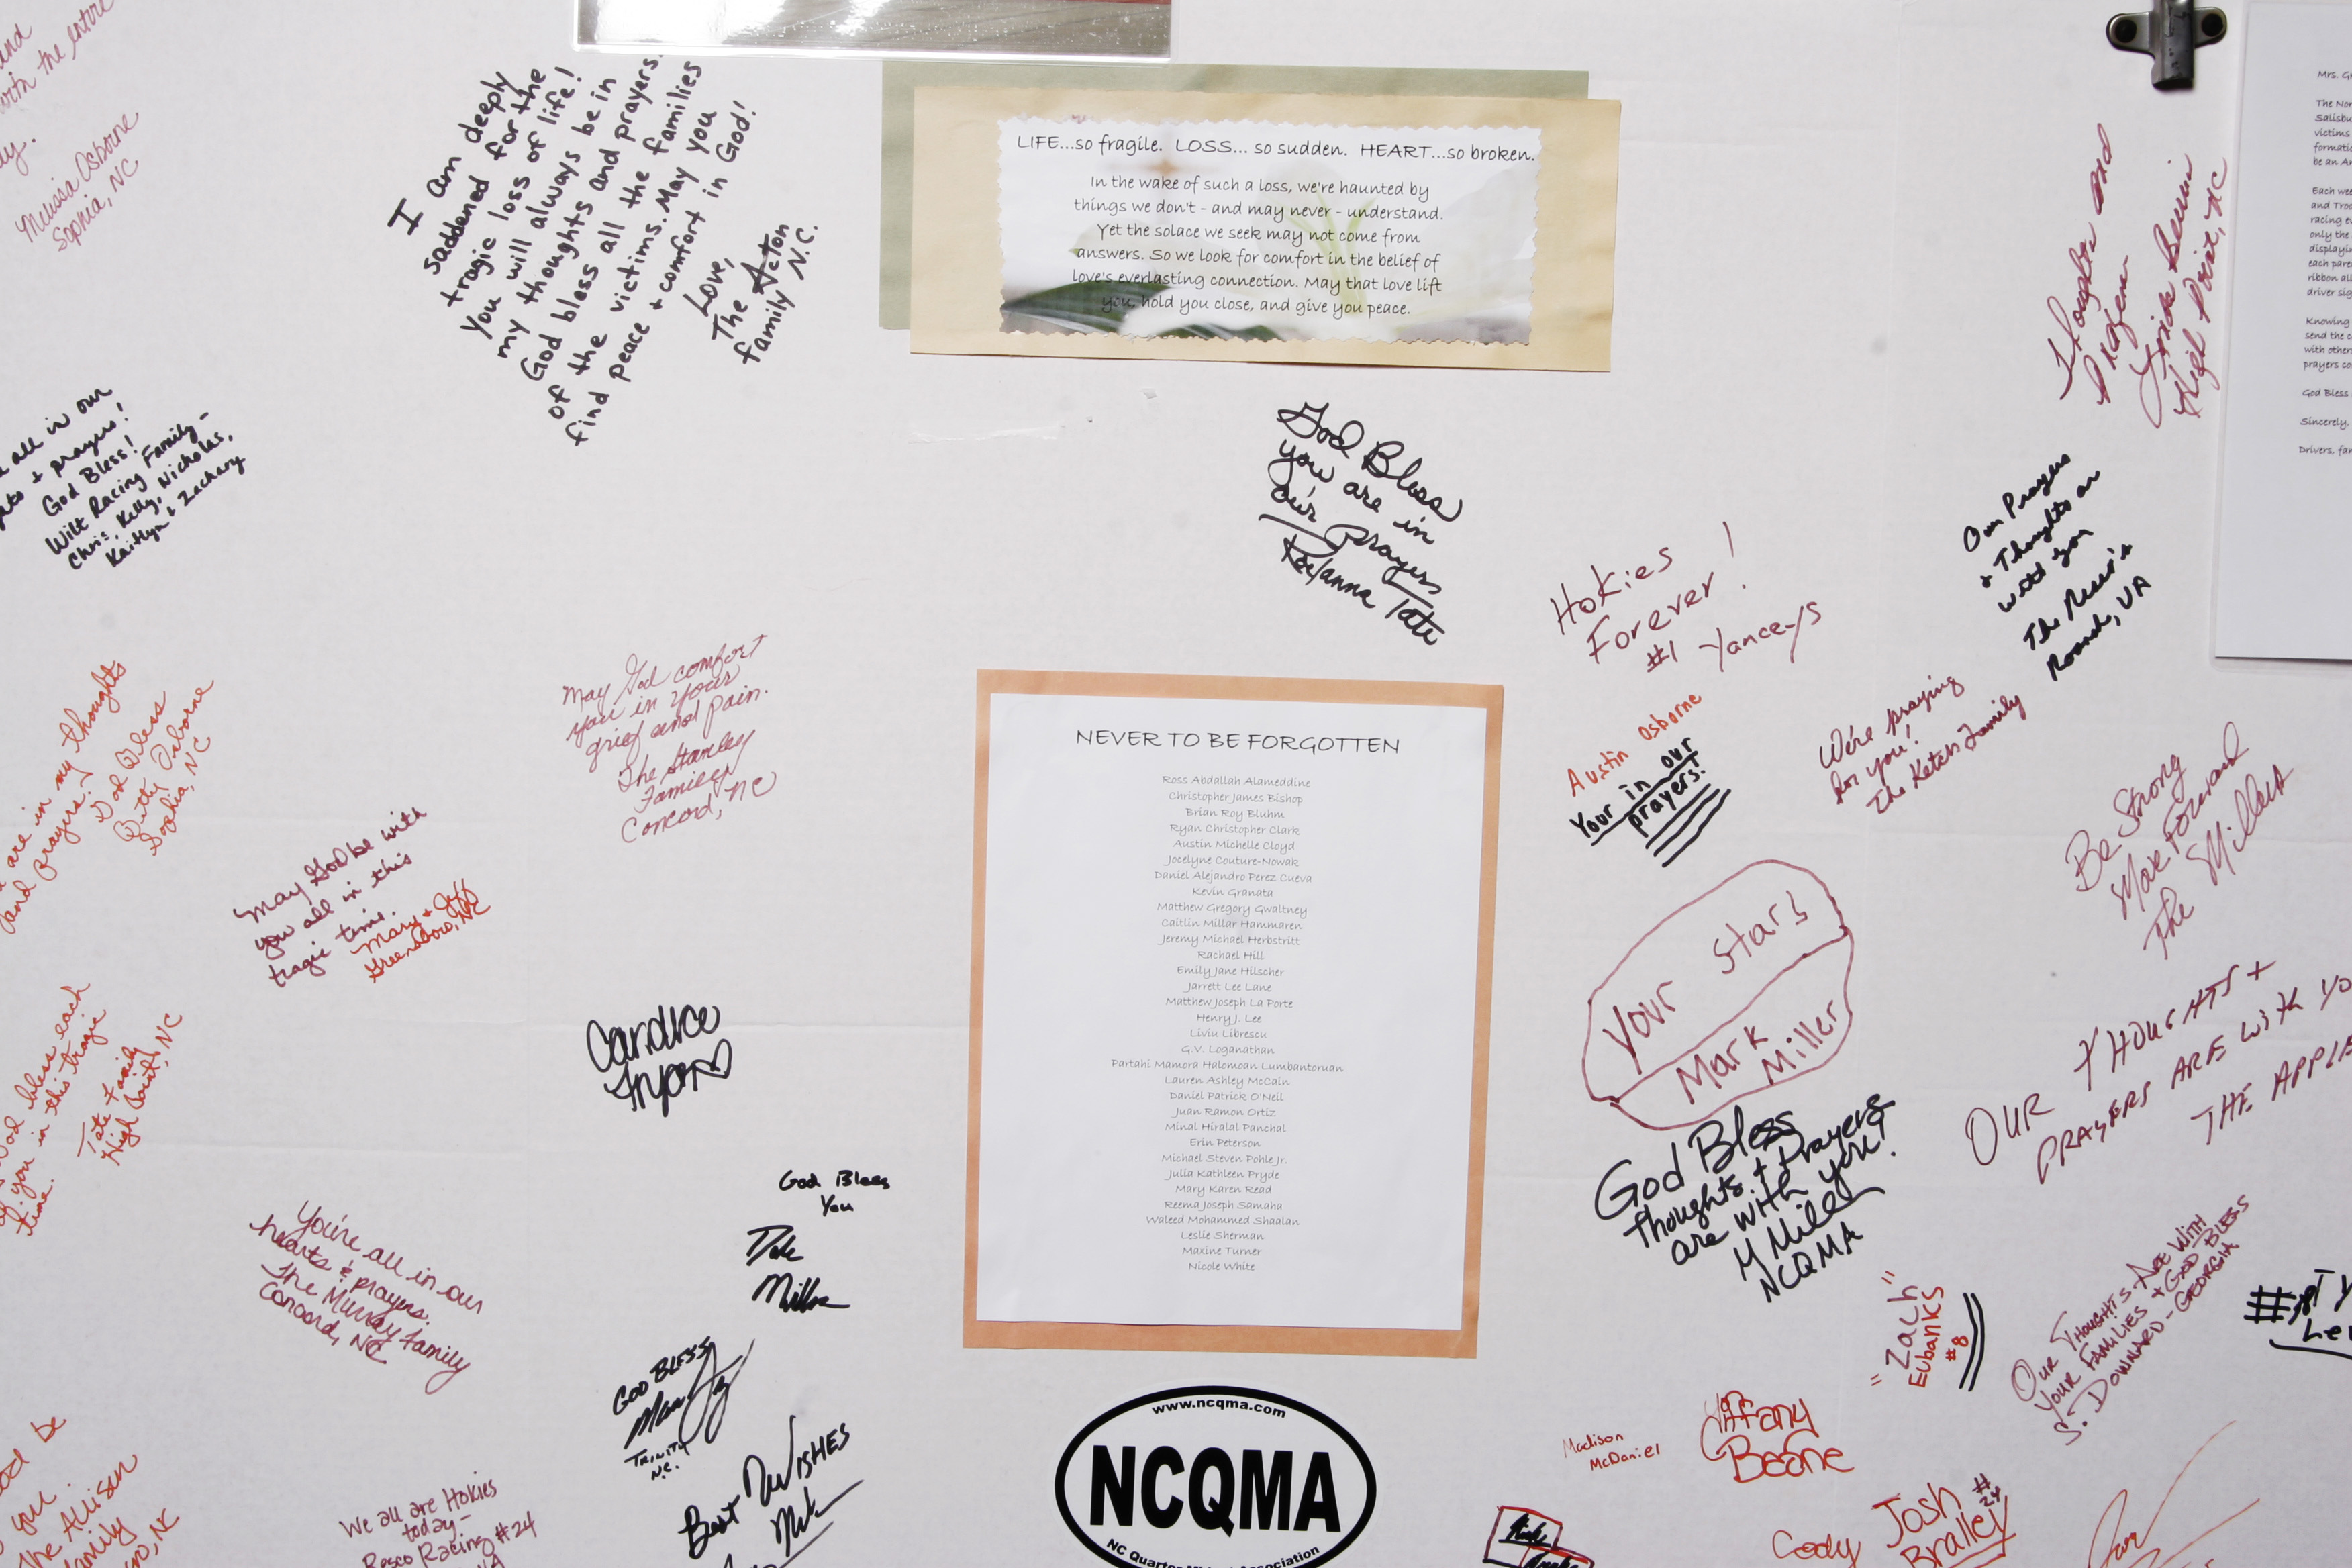 and
with the entire
Melissa Osborne
Sophia, NC
I am deeply
saddened for the
tragic loss of life!
You will always be in
my thoughts and prayers.
God bless all the families
of the victims. May you
find peace + comfort in God!
Love,
The Acton
family N.C.
LIFE...so fragile. LOSS... so sudden. HEART...so broken.
In the wake of such a loss, we're haunted by
things we don't - and may never - understand.
Yet the solace we seek may not come from
answers. So we look for comfort in the belief of
love's everlasting connection. May that love lift
you, hold you close, and give you peace.
Thoughts and
Prayers
High Point, NC
Mrs.
The
victims
be an
Each
and
racing
only the
each
ribbon
driver
Knowing
send the
with
prayers
God Bless
Sincerely,
Drivers,
all in our
+ prayers!
God Bless!
Wilt Racing Family -
Chris, Kelly, Nicholas,
Kaitlyn & Zachary
God Bless
you are in
our prayers
Tate
Our Prayers
+ Thoughts are
with you
The
VA
Hokies
Forever!
#1 Yanceys
May God comfort
you in your
grief and pain.
The Stanley
Family
Concord, NC
are in my thoughts
and prayers!
God Bless
Betty Osborne
Sophia, NC
Austin Osborne
Your in our
prayers!
We're praying
for you!
The Ketch Family
Be Strong
Move Forward
The Millers
NEVER TO BE FORGOTTEN
Ross Abdallah Alameddine
Christopher James Bishop
Brian Roy Bluhm
Ryan Christopher Clark
Austin Michelle Cloyd
Jocelyne Couture-Nowak
Daniel Alejandro Perez Cueva
Kevin Granata
Matthew Gregory Gwaltney
Caitlin Millar Hammaren
Jeremy Michael Herbstritt
Rachael Hill
Emily Jane Hilscher
Jarrett Lee Lane
Matthew Joseph La Porte
Henry J. Lee
Liviu Librescu
G.V. Loganathan
Partahi Mamora Halomoan Lumbantoruan
Lauren Ashley McCain
Daniel Patrick O'Neil
Juan Ramon Ortiz
Minal Hiralal Panchal
Erin Peterson
Michael Steven Pohle Jr.
Julia Kathleen Pryde
Mary Karen Read
Reema Joseph Samaha
Waleed Mohammed Shaalan
Leslie Sherman
Maxine Turner
Nicole White
May God be with
you all in this
tragic time.
Mary + Jeff
Greensboro, NC
Your Stars
Mark
Miller
OUR THOUGHTS +
PRAYERS ARE WITH
THE
God bless each
of you in this tragic
time.
Tate Family
High Point, NC
Candice
God Bless
Thoughts + Prayers
are with you!
NCQMA
God Bless
You
Dale
Miller
You're all in our
hearts & prayers.
The Murray family
Concord, NC
"Zach"
Eubanks
#8
OUR THOUGHTS ARE WITH
YOUR FAMILIES + GOD BLESS
S. DOWNARD - GEORGIA
GOD BLESS
TRINITY
N.C.
Best Wishes
We all are Hokies
today -
Racing #24
be
you.
The Allison
family
NC
www.ncqma.com
NCQMA
NC Quarter Midget Association
Madison
McDaniel
Tiffany
Beane
Josh
Bralley
#24
Cody